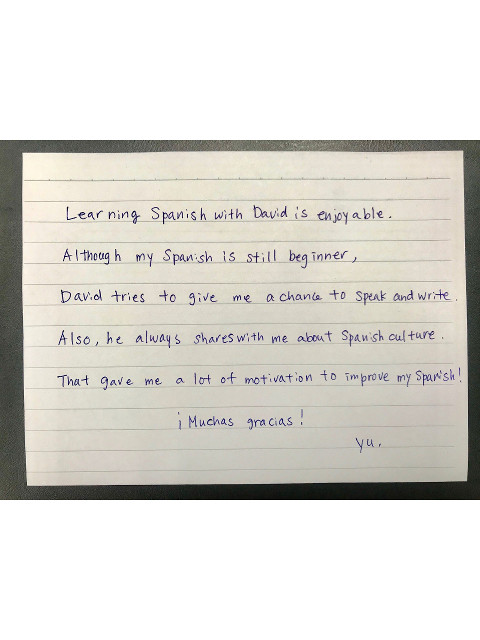 Learning Spanish with David is enjoyable.
Although my Spanish is still beginner,
David tries to give me a chance to speak and write.
Also, he always shares with me about Spanish culture.
That gave me a lot of motivation to improve my Spanish!
¡Muchas gracias!
yu.